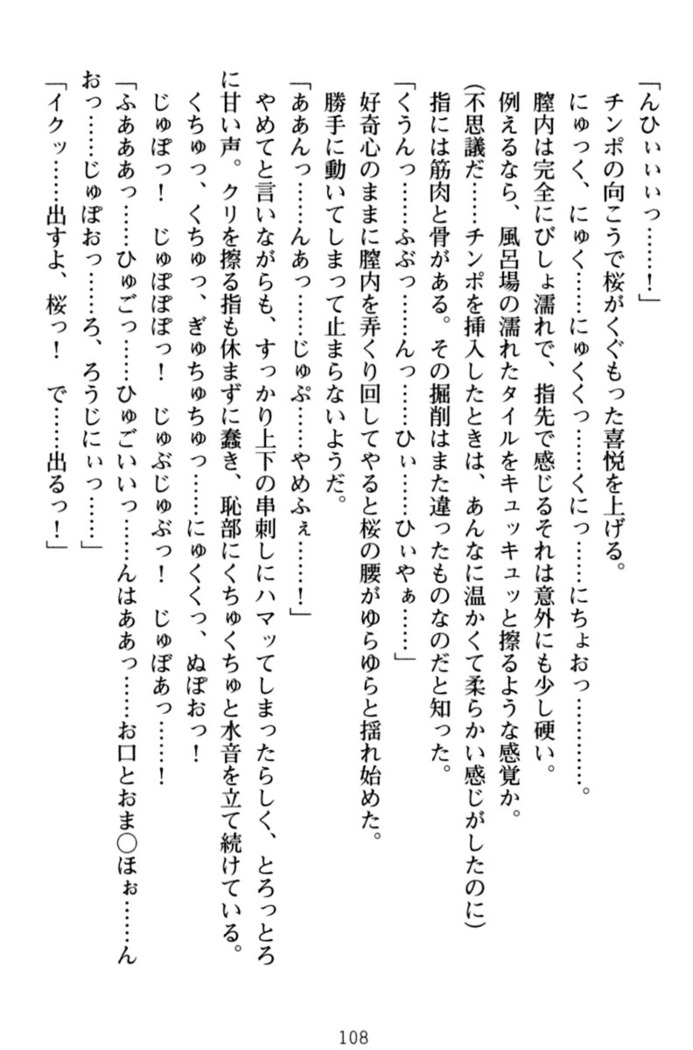 「んひぃぃぃっ……！」
チンポの向こうで桜がくぐもった喜悦を上げる。
にゅっく、にゅく……にゅくくっ……くにっ……にちょおっ…………。
膣内は完全にびしょ濡れで、指先で感じるそれは意外にも少し硬い。
例えるなら、風呂場の濡れたタイルをキュッキュッと擦るような感覚か。
(不思議だ……チンポを挿入したときは、あんなに温かくて柔らかい感じがしたのに)
指には筋肉と骨がある。その掘削はまた違ったものなのだと知った。
「くうんっ……ふぶっ……んっ……ひぃ……ひぃやぁ……」
好奇心のままに膣内を弄くり回してやると桜の腰がゆらゆらと揺れ始めた。
勝手に動いてしまって止まらないようだ。
「ああんっ……んあっ……じゅぷ……やめふぇ……！」
やめてと言いながらも、すっかり上下の串刺しにハマッてしまったらしく、とろっとろ
に甘い声。クリを擦る指も休まずに蠢き、恥部にくちゅくちゅと水音を立て続けている。
くちゅっ、くちゅっ、ぎゅちゅちゅっ……にゅくくっ、ぬぽおっ！
じゅぽっ！　じゅぽぽぽっ！　じゅぶじゅぶっ！　じゅぽあっ……！
「ふあああっ……ひゅごっ……ひゅごいいっ……んはああっ……お口とおま〇ほぉ……ん
おっ……じゅぽおっ……ろ、ろうじにぃっ……」
「イクッ……出すよ、桜っ！　で……出るっ！」
108